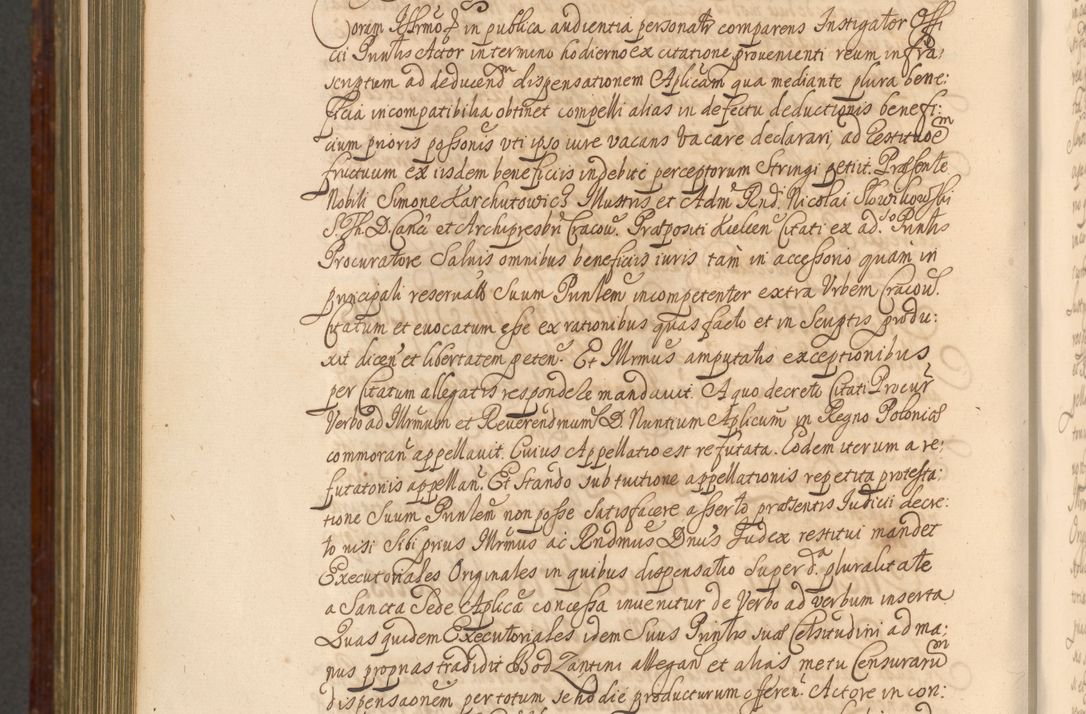 Coram Illrmo &c in publica audientia personalr comparens Instigator Offi
cii Pnntis Actor in termino hodierno ex citatione provenienti reum infra,
scriptum ad deducend dispensationem Aplicam qua mediante plura bene:
ficia incompatibilia obtinet compelli alias in defectu deductionis benefi:
cium prioris possonis uti ipso iure vacans vacare declarari, ad restituoem
fructuum ex iisdem beneficiis indebite perceptorum stringi petiit. Præsente
Nobili Simone Karchutowicz Illustris et Adm Rnd. Nicolai Słowikowski
S. Th. D. Canci et Archipresbri Cracou. Præpositi Kielcen Citati ex ads. Pnntis
Procuratore Salvis omnibus beneficiis iuris tam in accessorio quam in
principali reservatis Suum Pnnlem incompetenter extra Urbem Cracou.
citatum et evocatum esse ex rationibus quas facto et in Scriptis produ:
xit dicen et libertatem peten. Et Illrmus amputatis exceptionibus
per Citatum allegatis respondere mandavit. A quo decreto Citati Procur
Verbo ad Illrmum et Reverendmum D. Nuntium Aplicum in Regno Poloniæ
commoran appellavit. Cuius Appellatio est refutata. Eodem iterum a re,
futatonis appellan. Et Stando sub tuitione appellationis repetita protesta,
tione Suum Pnnlem non posse Satisfacere asserto præsentis Iudicii decre:
to nisi Sibi prius Illrmus ac Rndmus Dnus Judex restitui mandet
Executoriales Originales in quibus dispensatio Super da pluralitate
a Sancta Sede Aplica concessa invenitur de Verbo ad verbum inserta
Quas quidem Executoriales idem Suus Pnnlis suæ Celsitudini ad ma,
nus proprias tradidit Bodzantini allegan et alias metu Censurarum
dispensaonem per totum se hodie producturum offeren. Actore in con: